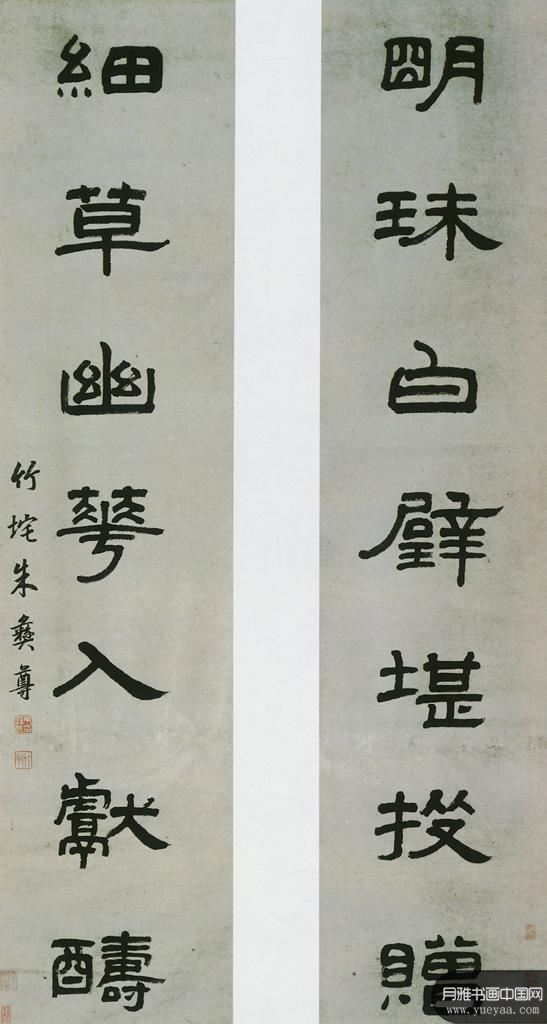 明珠白璧堪投贈
細草幽華入獻醻
竹垞朱彝尊
月雅书画中国网
www.yueyaa.com